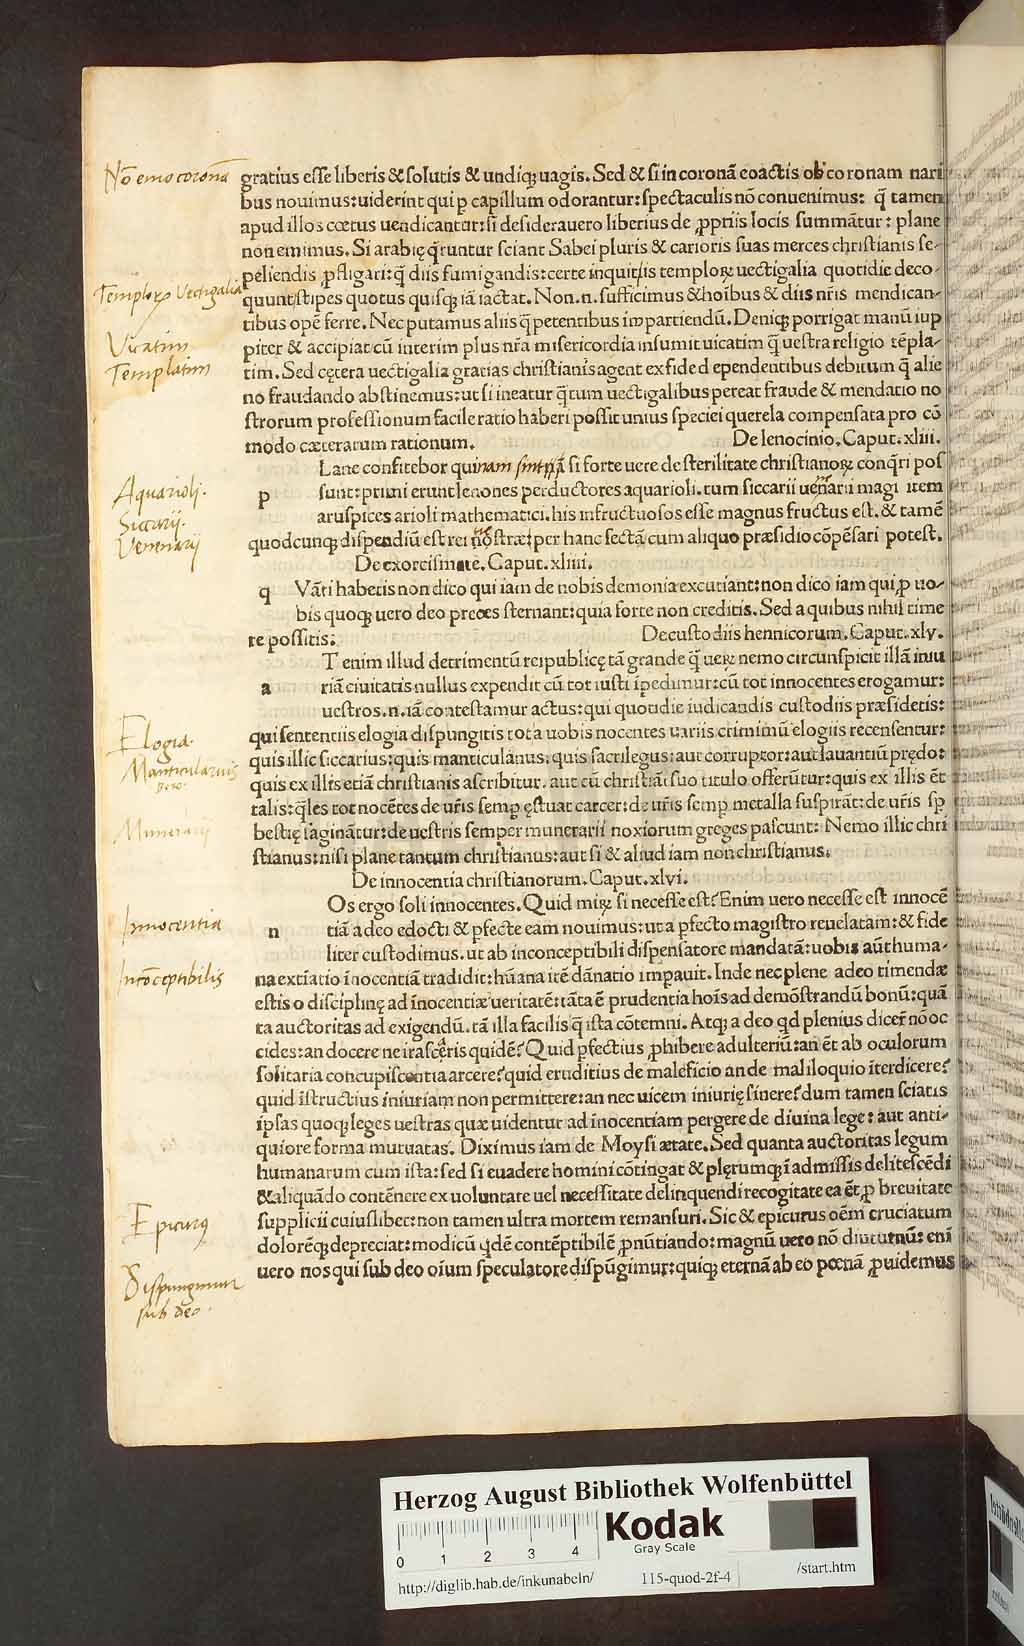 Nō emo coronā
gratius esse liberis & solutis & undiqꝫ uagis. Sed & si in coronā coactis ob coronam nari
bus nouimus: uiderint qui ꝑ capillum odorantur: spectaculis nō conuenimus: q̄ tamen
apud illos cœtus uendicantur: si desiderauero liberius de ꝓpriis locis summātur: plane
non emimus. Si arabię q̄runtur sciant Sabei pluris & carioris suas merces christianis se-
peliendis ꝓfligari: q̄ diis fumigandis: certe inquitis temploꝝ uectigalia quotidie deco-
Temploꝝ Vectigalia
quunt stipes quotus quisqꝫ iā iactat. Non .n. sufficimus & hoībus & diis nr̄is mendican-
tibus opē ferre. Nec putamus aliis q̄ petentibus impartiendū. Deniqꝫ porrigat manū iup
Vicatim
piter & accipiat cū interim plus nr̄a misericordia insumit uicatim q̄ uestra religio tēpla-
Templatim
tim. Sed cętera uectigalia gratias christianis agent ex fide dependentibus debitum q̄ alie
no fraudando abstinemus: ut si ineatur q̄tum uectigalibus pereat fraude & mendatio no
strorum professionum facile ratio haberi possit unius speciei querela compensata pro cō
modo cæterarum rationum. De lenocinio. Caput. xliii.
p Lane confitebor quinam si forte uere de sterilitate christianoꝝ conq̄ri pos
Aquarioli.
sunt: primi erunt lenones perductores aquarioli. tum siccarii uenarii magi item
Siccarii.
aruspices arioli mathematici. his infructuosos esse magnus fructus est. & tamē
Venenarii
quodcunqꝫ dispendiū est rei nostræ: per hanc sectā cum aliquo præsidio cōpēsari potest.
De exorcismate. Caput. xliiii.
q Vāti habetis non dico qui iam de nobis demonia excutiant: non dico iam qui ꝓ uo-
bis quoqꝫ uero deo preces sternant: quia forte non creditis. Sed a quibus nihil time
re possitis. De custodiis hennicorum. Caput. xlv.
a T enim illud detrimentū reipublicę tā grande q̄ ueꝝ nemo circunspicit illā iniu
riā ciuitatis nullus expendit cū tot iusti īpedimur: cū tot innocentes erogamur:
uestros .n. iā contestamur actus: qui quotidie iudicandis custodiis præsidetis:
Elogia.
qui sententiis elogia dispungitis tot a uobis nocentes uariis criminū elogiis recensentur:
Manticularius
quis illic siccarius: quis manticulanus: quis sacrilegus: aut corruptor: aut lauantiū prędo:
quis ex illis etiā christianis ascribitur. aut cū christiāi suo titulo offerūtur: quis ex illis ēt
talis: q̄les tot nocētes de ur̄is semꝑ ęstuat carcer: de ur̄is semꝑ metalla suspirāt: de ur̄is sꝑ
Munerarii
bestię saginātur: de uestris semper munerarii noxiorum greges pascunt: Nemo illic chri
stianus: nisi plane tantum christianus: aut si & aliud iam non christianus.
De innocentia christianorum. Caput. xlvi.
n Os ergo soli innocentes. Quid miꝝ si necesse est? Enim uero necesse est innocē
Innocentia
tiā a deo edocti & ꝑfecte eam nouimus: ut a ꝑfecto magistro reuelatam: & fide
liter custodimus. ut ab inconceptibili dispensatore mandatā: uobis aūt huma-
Incōceptibilis
na extiatio īnocentiā tradidit: hūana itē dānatio impauit. Inde nec plene adeo timendæ
estis o disciplinę ad īnocentiæ ueritatē: tāta ē prudentia hoīs ad demōstrandū bonū: quā
ta auctoritas ad exigendū. tā illa facilis q̄ ista cōtemni. Atqꝫ a deo qd plenius dicer̄ nō oc
cides: an docere ne irasceris quidē? Quid ꝑfectius ꝓhibere adulteriū: an ēt ab oculorum
solitaria concupiscentia arcere? quid eruditius de maleficio an de maliloquio īterdicere?
quid īstructius iniuriam non permittere: an nec uicem iniurię sinere? dum tamen sciatis
ipsas quoqꝫ leges uestras quæ uidentur ad innocentiam pergere de diuina lege: aut anti-
quiore forma mutuatas. Diximus iam de Moysi ætate. Sed quanta auctoritas legum
humanarum cum ista: sed si euadere homini cōtingat & plęrumqꝫ ī admissis delitescēdi
& aliquādo contēnere ex uoluntate uel necessitate delinquendi recogitate ea ēt ꝓ breuitate
Epicurꝰ
supplicii cuiuslibet: non tamen ultra mortem remansuri. Sic & epicurus oēm cruciatum
dolorēqꝫ depreciat: modicū qdē contēptibilē ꝓnūtiando: magnū uero nō diuturnū: enī
Dispungimur
uero nos qui sub deo oīum speculatore dispūgimur: quiqꝫ eternā ab eo pœnā ꝓuidemus
sub deo.
Herzog August Bibliothek Wolfenbüttel
Kodak
Gray Scale
0 1 2 3 4
http://diglib.hab.de/inkunabeln/ 115-quod-2f-4 /start.htm